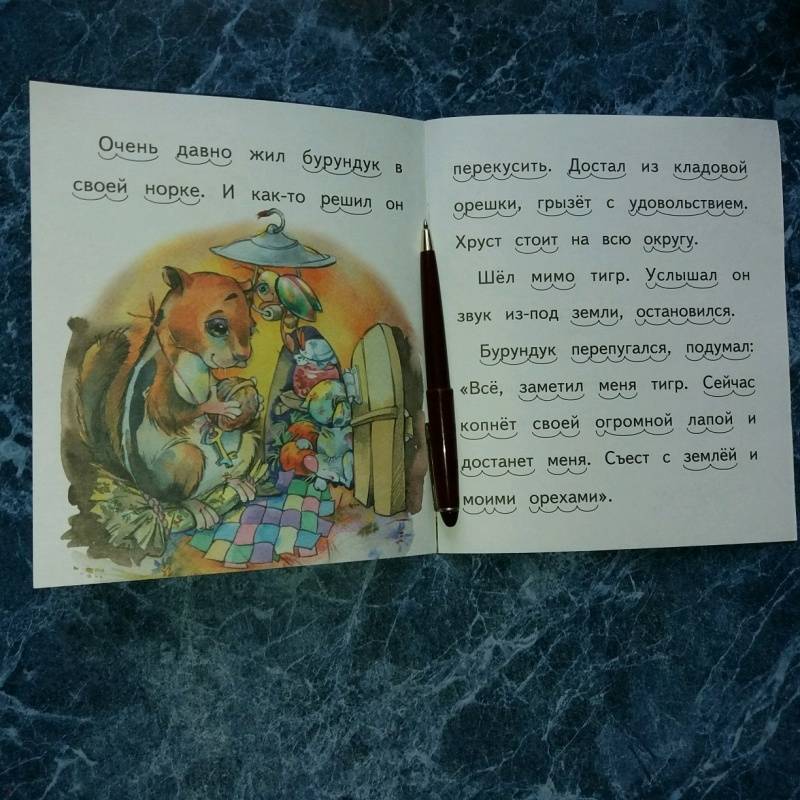 Очень давно жил бурундук в
своей норке. И как-то решил он
перекусить. Достал из кладовой
орешки, грызёт с удовольствием.
Хруст стоит на всю округу.
Шёл мимо тигр. Услышал он
звук из-под земли, остановился.
Бурундук перепугался, подумал:
«Всё, заметил меня тигр. Сейчас
копнёт своей огромной лапой и
достанет меня. Съест с землёй и
моими орехами».